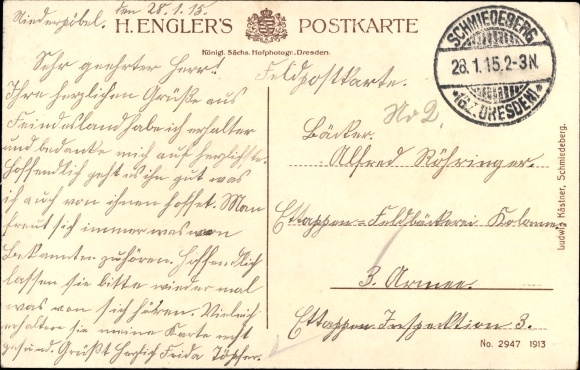 Niederpöbel. den 28.1.15.
H. ENGLER'S POSTKARTE
Königl. Sächs. Hofphotogr. Dresden.
SCHMIEDEBERG
28.1.15.2-3N.
*(BZ. DRESDEN)*
Sehr geehrter Herr!
Ihre herzlichen Grüße aus
Feindesland habe ich erhalten
und bedanke mich auf herzlichste.
Hoffendlich geht es ihn gut was
ich auch von ihnen hoffet. Man
freut sich immer was von
Bekannten zuhören. Hoffendlich
lassen sie bitte wieder mal
was von sich hören. Vieleich
erhalten sie meine Karte recht
gesund. Grüßt Herzlich Frida Töpfer.
Feldpostkarte.
No 2.
Bäcker.
Alfred Röhringer
Ettappen-Feldbäckerei Kolonne
3. Armee.
Ettappen Inspektion 3.
Ludwig Kästner, Schmiedeberg.
No. 2947 1913